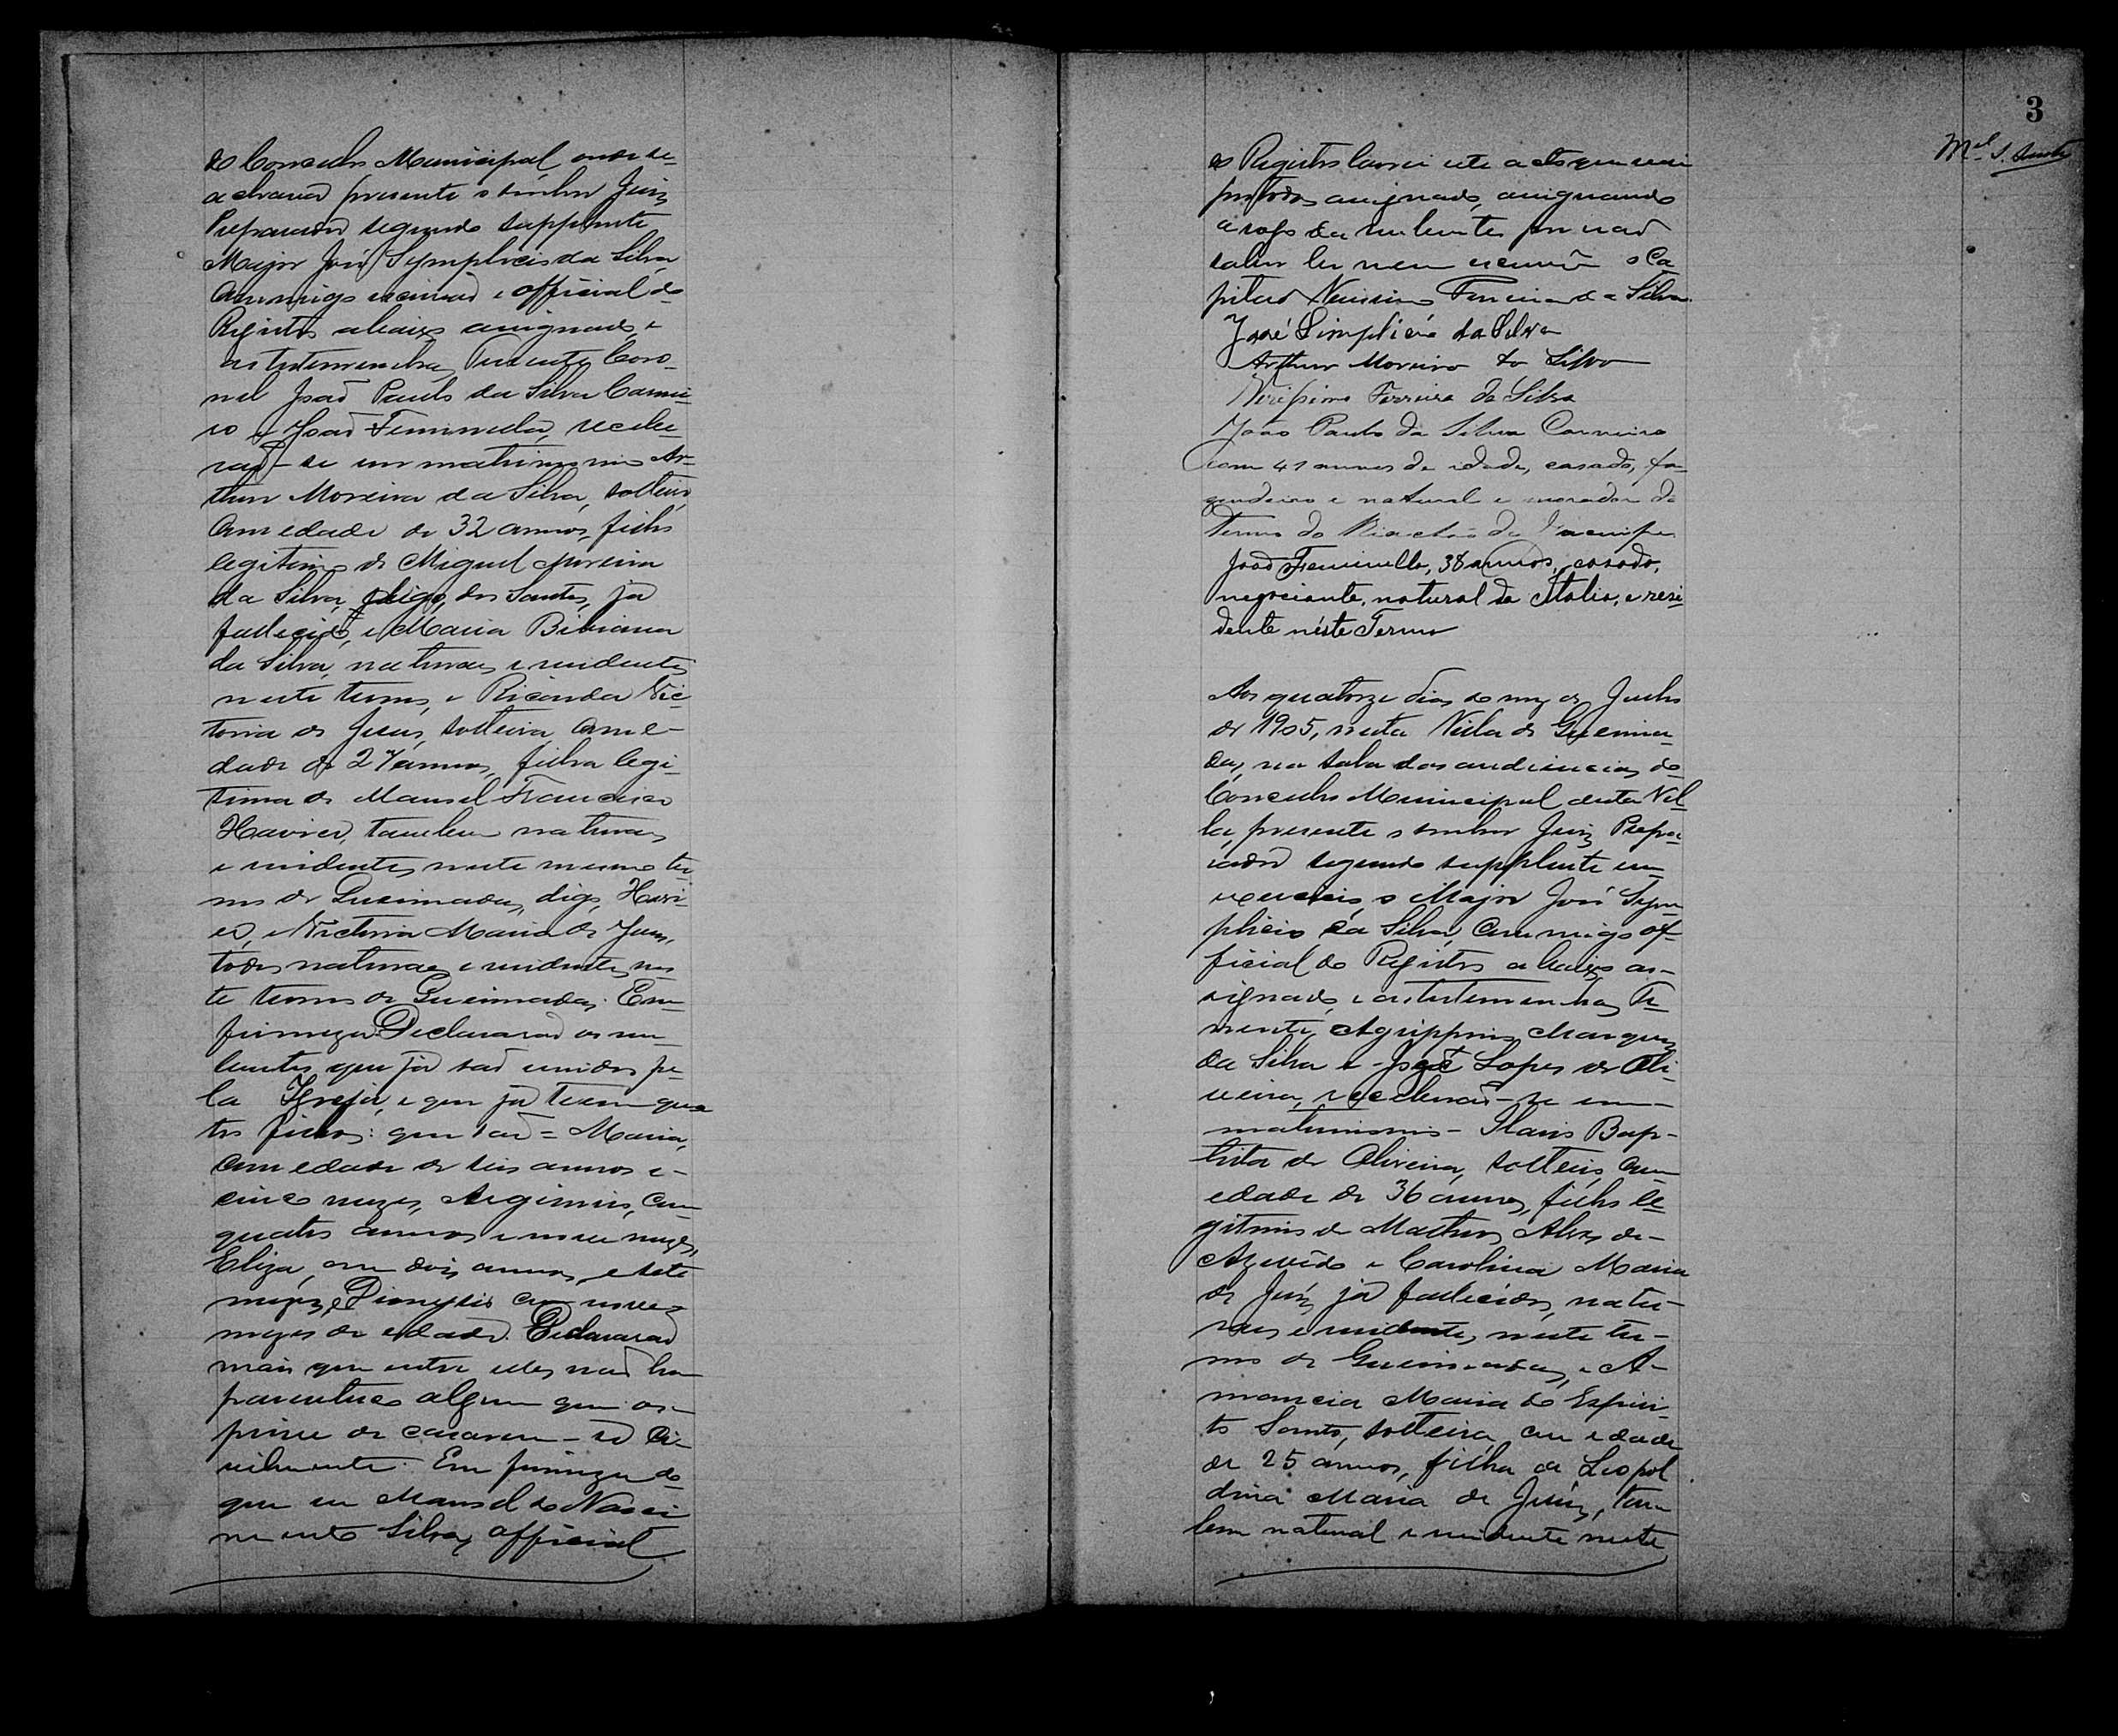 do Concelho Municipal, onde se
achava presente o senhor Juiz
Preparador segundo supplente
Major José Symplicio da Silva,
commigo escrivão e official do
Registro abaixo assignado, e
as testemunhas Tenente Coro-
nel João Paulo da Silva Carnei-
ro e João Feminella, recebe-
rão-se em matrimonio Ar-
thur Moreira da Silva, solteiro,
com edade de 32 annos, filho
legitimo de Miguel Moreira
da Silva, digo, dos Santos, já
fallecido, e Maria Bibiana
da Silva, naturaes e residentes
neste termo, e Ricarda Vic-
toria de Jesus, solteira com e-
dade de 27 annos, filha legi-
tima de Manoel Francisco
Xavier, tambem naturaes
e residentes neste mesmo ter-
mo de Queimadas, digo, Xavi-
er, e Victoria Maria de Jesus,
todos naturaes e residentes nes-
te termo de Queimadas. Em
firmeza Declararão os nu-
bentes que já são unidos pe-
la Igreja, e que já teem qua
tro filhos: que são = Maria,
com edade de seis annos e
cinco mezes, Argimiro, com
quatro annos e nove mezes,
Eliza, com dois annos e sete
mezes, e Dionysio com nove
mezes de edade. Declararão
mais que entre elles não ha
parentesco algum que os
prive de casarem-se ci-
vilmente. Em firmeza do
que eu Manoel do Nasci
mento Silva, official
3
Mel S. 
do Registro lavrei este acto que vai
por todos assignado, assignando
a rogo da nubente por não
saber ler nem escrever o Ca
pitão Verissimo Ferreira da Silva.
José Simplicio da Silva
Arthur Moreira da Silva
Verissimo Ferreira da Silva
João Paulo da Silva Carneiro
com 41 annos de idade, casado, fa-
zendeiro e natural e morador do
Termo do Riachão do Jacuipe
João Feminella, 38 annos, casado,
negociante, natural da Italia, e resi-
dente néste Termo
Aos quatorze dias do mez de Julho
de 1905, nesta Villa de Queima-
das, na sala das audiencias do
Concelho Municipal desta Vil-
la, presente o senhor Juiz Prepa-
rador segundo supplente em
exercicio, o Major José Sym-
plicio da Silva, commigo of-
ficial do Registro abaixo as-
signado, e as testemunhas Te-
nente Agrippino Marques
da Silva e José Lopes de Oli-
veira, receberão-se em
matrimonio - Ilario Bap-
tista de Oliveira, solteiro, com
edade de 36 annos, filho le-
gitimo de Matheus Alves de
Azevêdo e Carolina Maria
de Jesús, já fallecidos, natu-
raes e residentes neste ter-
mo de Queimadas, e A-
mancia Maria do Espiri-
to Santo, solteira, com edade
de 25 annos, filha de Leopol
dina Maria de Jesús, tam
bem natural e residente neste